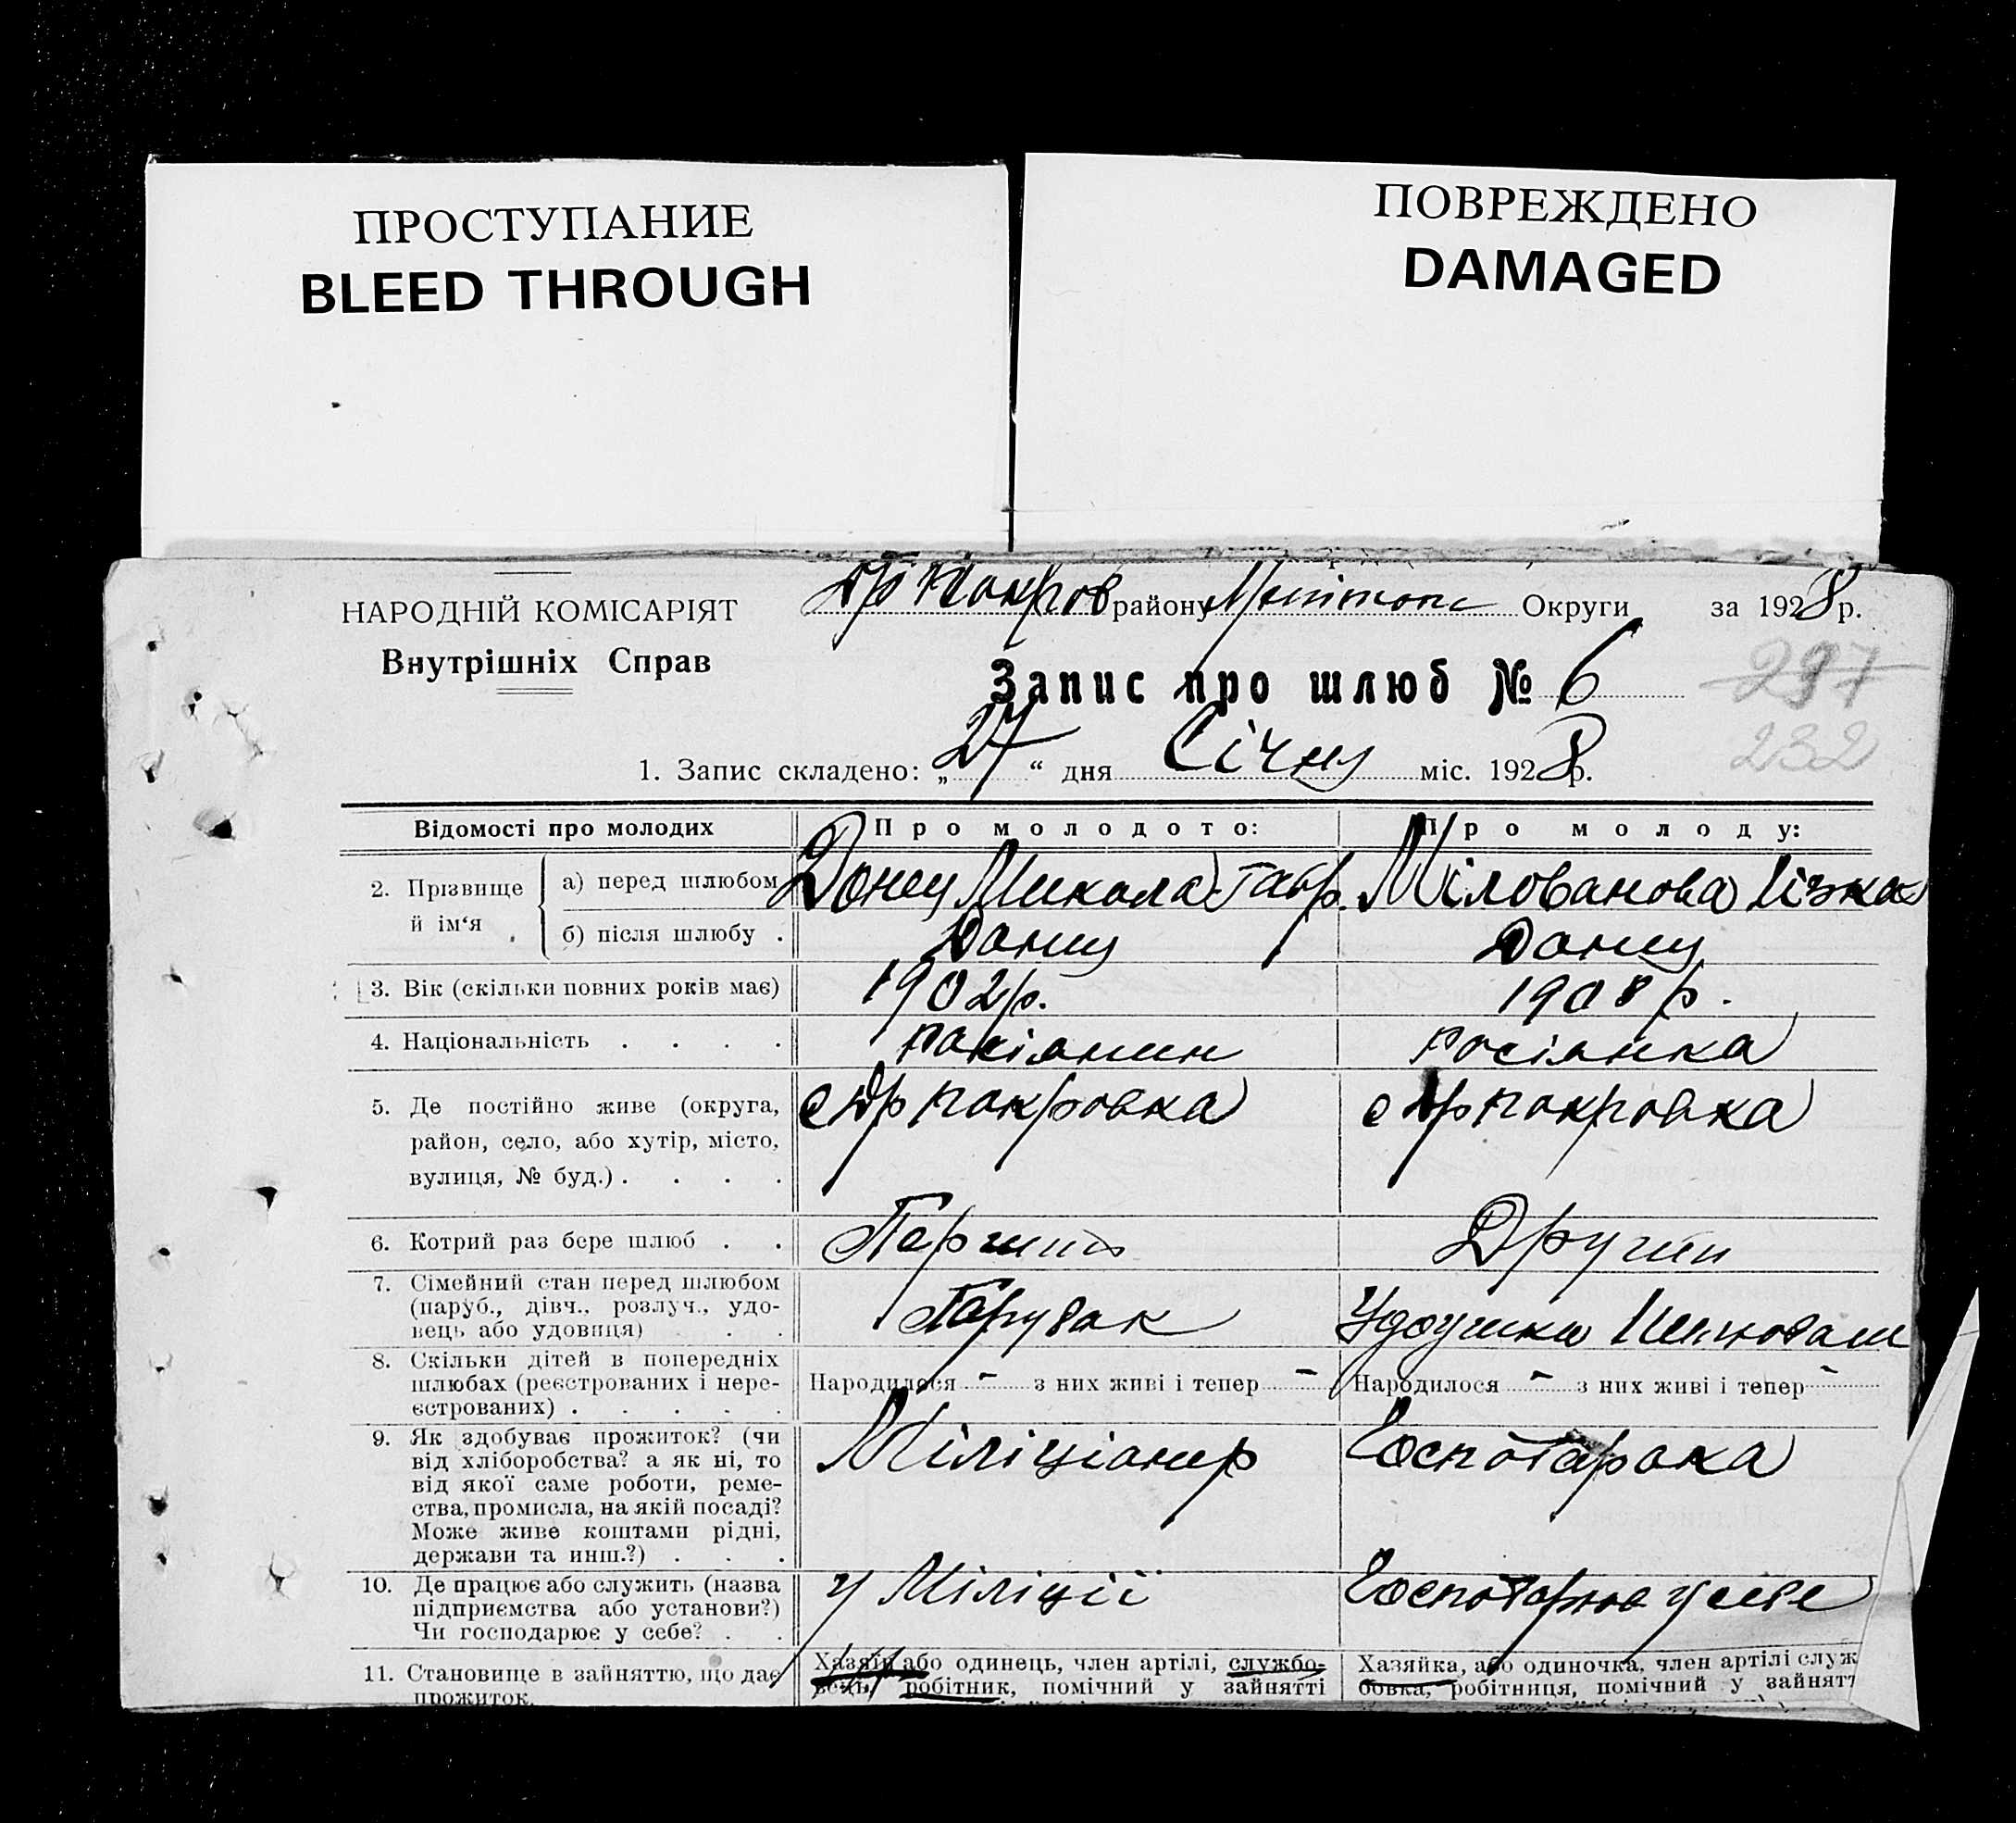 ПРОСТУПАНИЕ
BLEED THROUGH
ПОВРЕЖДЕНО
DAMAGED
НАРОДНІЙ КОМІСАРІЯТ
Внутрішніх Справ
району Округи за 1928 р.
Запис про шлюб № 6
297
232
1. Запис складено: „27“ дня Січня міс. 1928 р.
Відомості про молодих
Про молодого:
Про молоду:
2. Прізвище й ім‘я
а) перед шлюбом
Донец Микола Гавр.
Мілованова
б) після шлюбу .
Донец
Донец
3. Вік (скільки повних років має)
1902 р.
1908 р.
4. Національність . . . .
росіянка
5. Де постійно живе (округа,
район, село, або хутір, місто,
вулиця, № буд.) . . . .
с покровка
с покровка
6. Котрий раз бере шлюб . .
Перший
Другий
7. Сімейний стан перед шлюбом
(паруб., дівч., розлуч., удо-
вець або удовиця) . .
Парубак
8. Скільки дітей в попередніх
шлюбах (реєстрованих і нере-
єстрованих) . . . . .
Народилося – з них живі і тепер –
Народилося – з них живі і тепер –
9. Як здобуває прожиток? (чи
від хліборобства? а як ні, то
від якої саме роботи, реме-
ства, промисла, на якій посаді?
Може живе коштами рідні,
держави та инш.?) . . .
Міліціонер
10. Де працює або служить (назва
підприємства або установи?)
Чи господарює у себе? . .
у Міліції
11. Становище в зайняттю, що дає
прожиток.
Хазяїн або одинець, член артілі, службо-
вець, робітник, помічний у зайнятті
Хазяйка, або одиночка, член артілі служ
бовка, робітниця, помічний у зайнятт